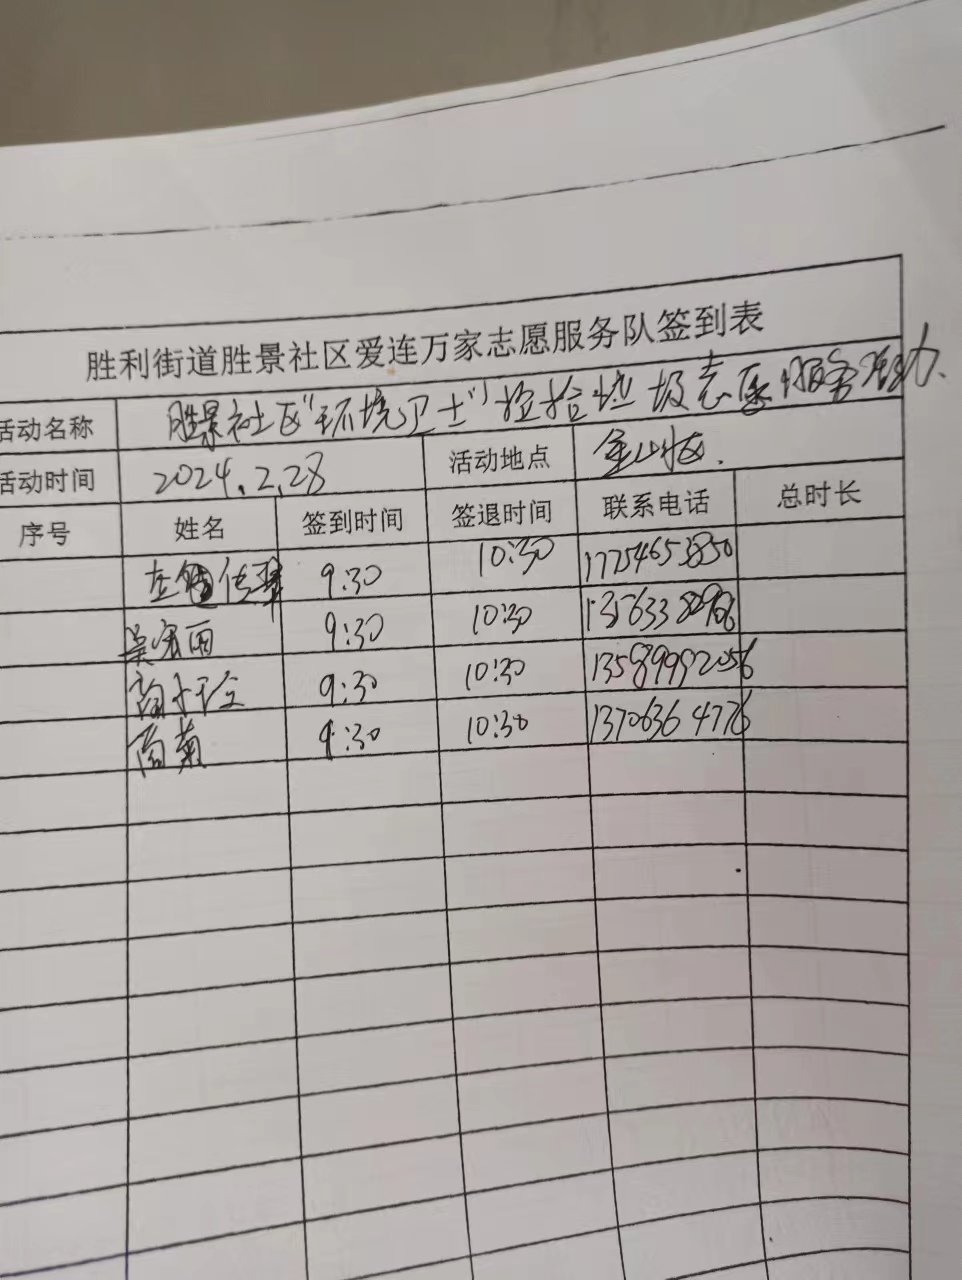 胜利街道胜景社区爱连万家志愿服务队签到表
活动名称 胜景社区“环境卫士”捡拾垃圾志愿服务活动.
活动时间 2024.2.28 活动地点 金山
序号 姓名 签到时间 签退时间 联系电话 总时长
9:30 10:30
吴 雨 9:30 10:30
9:30 10:30 13589992056
高菊 9:30 10:30 13706364776